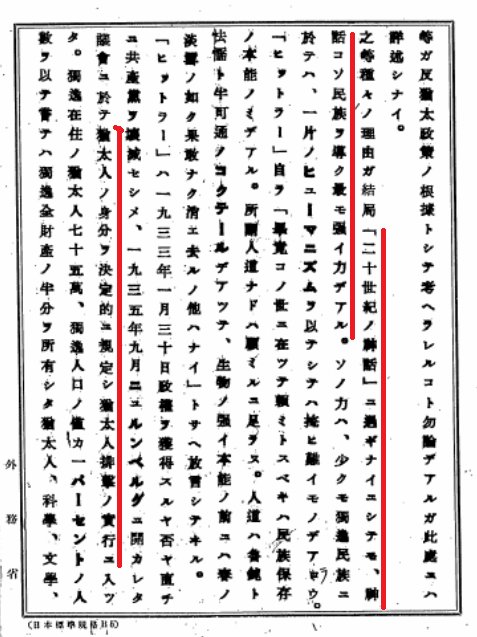 等ガ反猶太政策ノ根據トシテ考ヘラレルコト勿論デアルガ此處ニハ
詳述シナイ。
之等種々ノ理由ガ結局「二十世紀ノ神話」ニ過ギナイニシテモ、神
話コソ民族ヲ導ク最モ强イ力デアル。ソノ力ハ、少クモ獨逸民族ニ
於テハ、一片ノヒューマニズムヲ以テシテハ掩ヒ難イモノデアロウ。
「ヒットラー」自ラ「畢竟コノ世ニ在ツテ頼ミトスベキハ民族保存
ノ本能ノミデアル。所謂人道ナドハ顧ミルニ足ラズ。人道ハ魯鈍ト
怯懦ト半可通ノコクテールデアツテ、生物ノ强イ本能ノ前ニハ春ノ
淡雪ノ如ク果敢ナク消エ去ルノ他ハナイ」トサヘ放言シテキル。
「ヒットラー」ハ一九三三年一月三十日政權ヲ獲得スルヤ否ヤ直チ
ニ共産黨ヲ壞滅セシメ、一九三五年九月ニュルンベルグニ開カレタ
議會ニ於テ猶太人ノ身分ヲ決定的ニ規定シ猶太人排擊ノ實行ニ入ツ
タ。獨逸在住ノ猶太人七十五萬、獨逸人口ノ僅カ一パーセントノ人
數ヲ以テ嘗テハ獨逸全財産ノ半分ヲ所有シタ猶太人、科學、文學、
外務省
(日本標準規格B5)